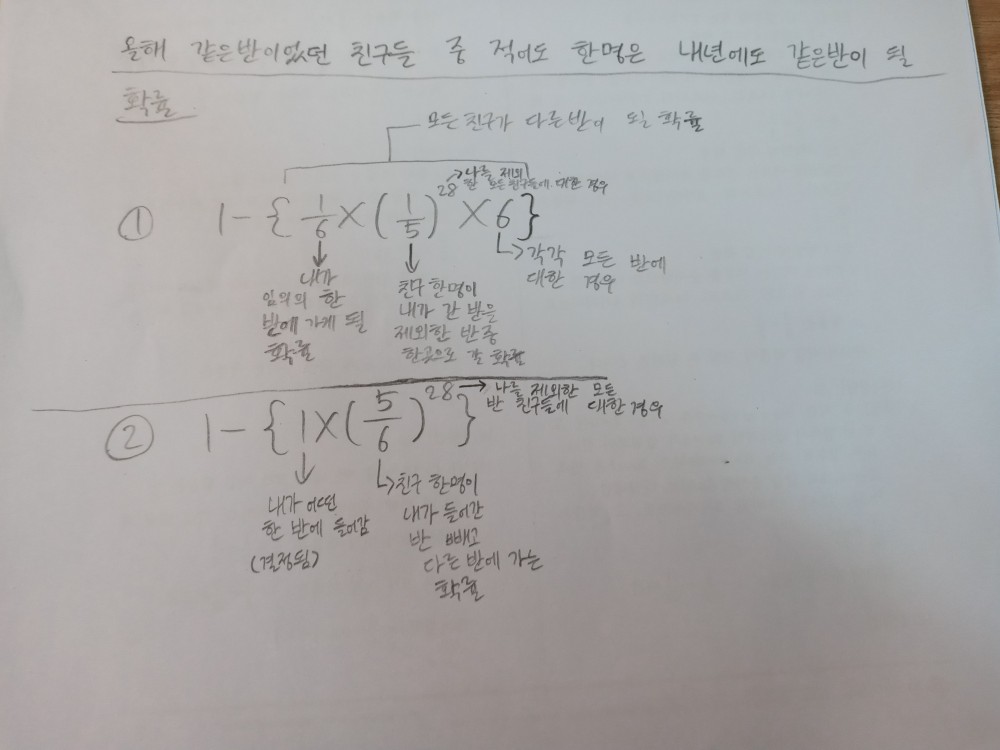 올해 같은반이었던 친구들 중 적어도 한명은 내년에도 같은반이 될
확률
모든 친구가 다른반이 될 확률
① 1-{1/6×(1/5)^28×6}
→나를 제외
한 모든 친구들에 대한 경우
↓
내가
임의의 한
반에 가게 될
확률
↓
친구 한명이
내가 간 반을
제외한 반중
한곳으로 갈 확률
→각각 모든 반에
대한 경우
② 1-{1×(5/6)^28}
→나를 제외한 모든
반 친구들에 대한 경우
↓
내가 어떤
한 반에 들어감
(결정됨)
→친구 한명이
내가 들어간
반 빼고
다른 반에 가는
확률